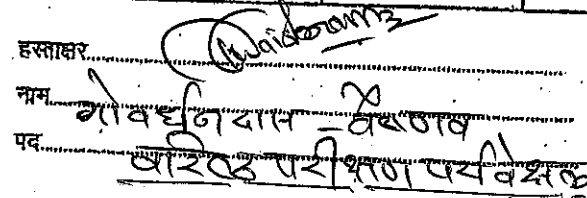 हस्ताक्षर
नाम गोवर्धनदास - वैष्णव
पद वरिष्ठ परीक्षण पर्यवेक्षक